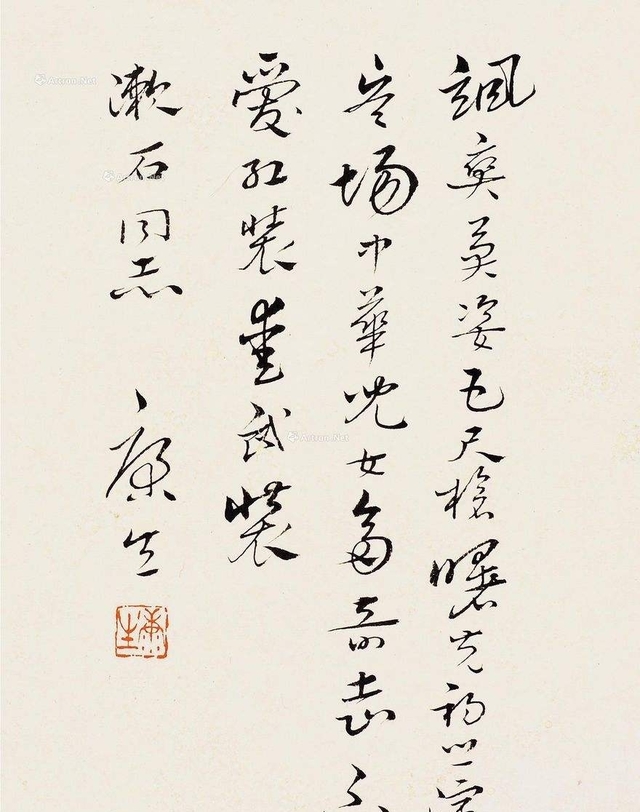 颯爽英姿五尺槍曙光初照
兵場中華兒女多奇志不
愛紅裝愛武裝
漱石同志 康生
康生
Artron.Net
Artron.Net
Artron.Net